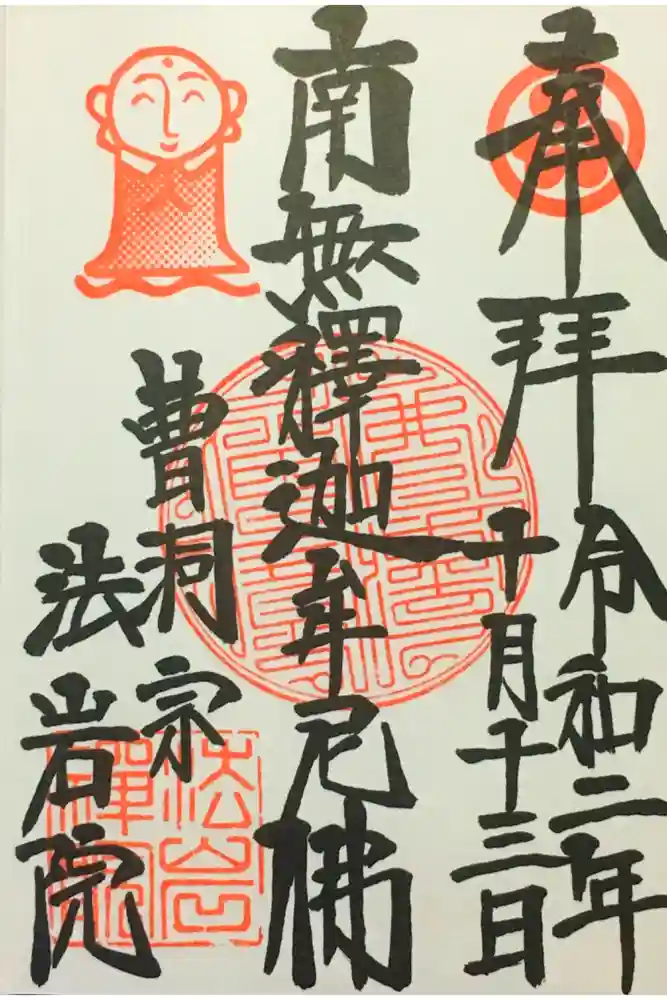 奉拝
令和二年
十月十三日
南無釋迦牟尼佛
曹洞宗
法岩院
法岩
禅院